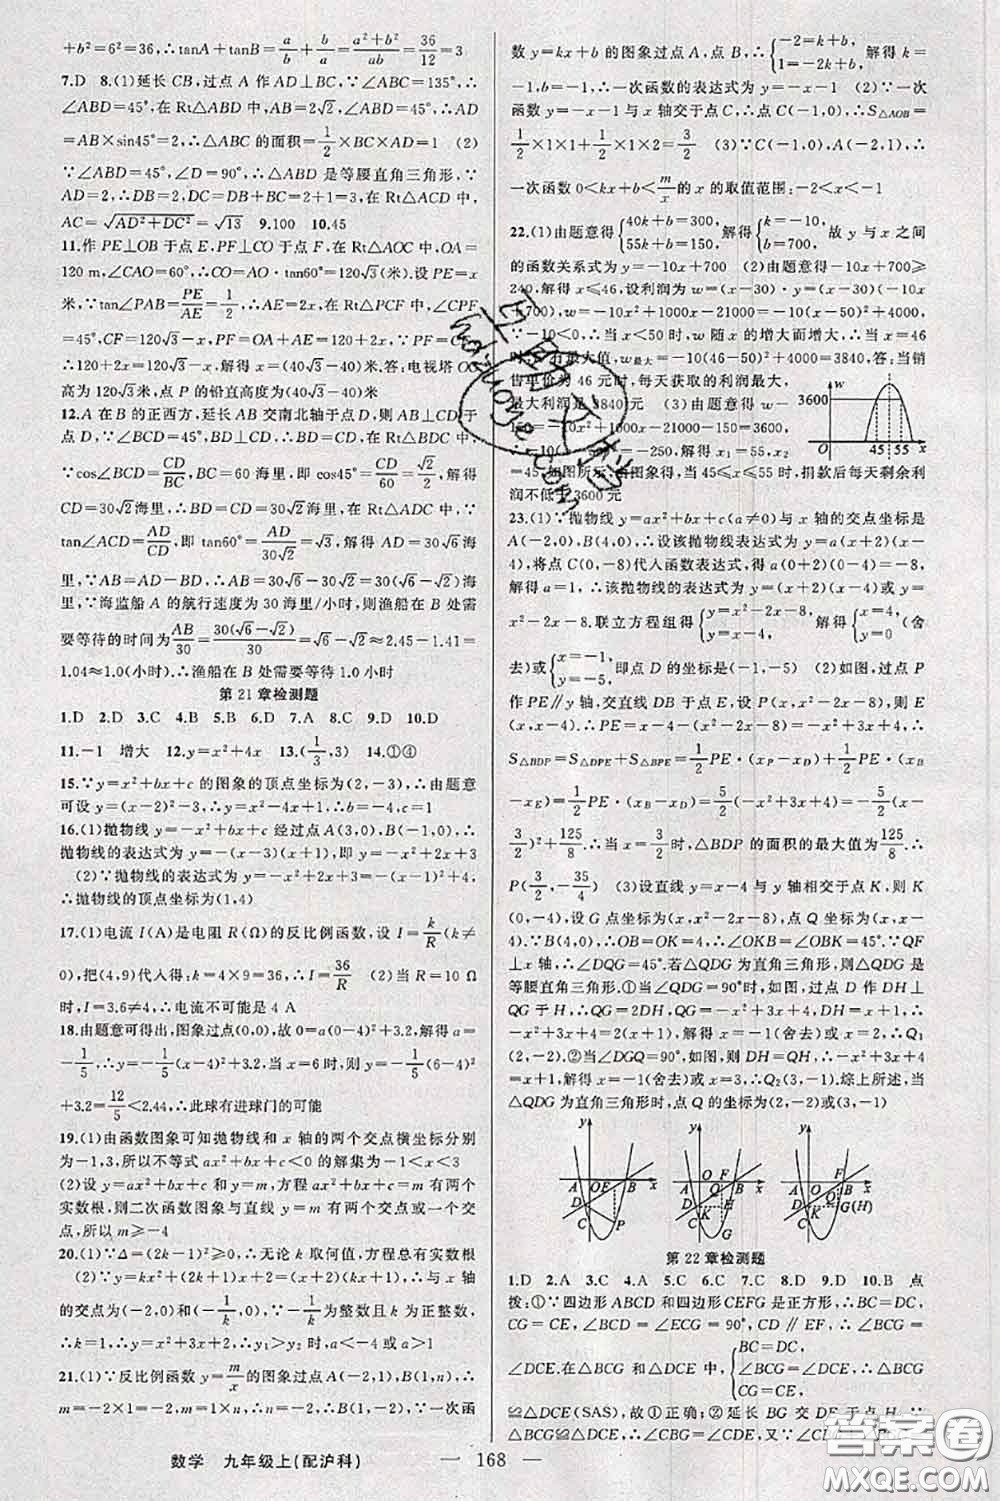 +b²=6²=36,∴tanA+tanB=a/b+b/a=(a²+b²)/ab=36/12=3
7.D 8.(1)延长CB,过点A作AD⊥BC,∵∠ABC=135°,∴
∠ABD=45°,在Rt△ABD中,AB=2√2,∠ABD=45°,∴AD
=AB×sin45°=2,∴△ABC的面积=1/2×BC×AD=1 (2)
∵∠ABD=45°,∠D=90°,∴△ABD是等腰直角三角形,∴
BD=AD=2,∴DC=DB+BC=2+1=3,在Rt△ADC中,
AC=√(AD²+DC²)=√13 9.100 10.45
11.作PE⊥OB于点E,PF⊥CO于点F,在Rt△AOC中,OA=
120 m,∠CAO=60°,∴CO=AO·tan60°=120√3(米).设PE=x
米,∵tan∠PAB=PE/AE=1/2,∴AE=2x.在Rt△PCF中,∠CPF
=45°,CF=120√3-x,PF=OA+AE=120+2x,∵PF=CF,
∴120+2x=120√3-x,解得x=(40√3-40)米.答:电视塔OC
高为120√3米,点P的铅直高度为(40√3-40)米
12.A在B的正西方,延长AB交南北轴于点D,则AB⊥CD于
点D,∵∠BCD=45°,BD⊥CD,∴BD=CD.在Rt△BDC中,
∵cos∠BCD=CD/BC,BC=60海里,即cos45°=CD/60=√2/2,解得
CD=30√2海里,∴BD=CD=30√2海里,在Rt△ADC中,∵
tan∠ACD=AD/CD,即tan60°=AD/30√2=√3,∴AD=30√6海
里,∵AB=AD-BD,∴AB=30√6-30√2=30(√6-√2)海
里,∵海监船A的航行速度为30海里/小时,则渔船在B处需
要等待的时间为AB/30=30(√6-√2)/30=√6-√2≈2.45-1.41=
1.04≈1.0(小时).∴渔船在B处需要等待1.0小时
第21章检测题
1.D 2.D 3.C 4.B 5.B 6.D 7.A 8.C 9.D 10.D
11.-1 增大 12.y=x²+4x 13.(1/3,3) 14.①④
15.∵y=x²+bx+c的图象的顶点坐标为(2,-3),∴由题意
可设y=(x-2)²-3,∴y=x²-4x+1,∴b=-4,c=1
16.(1)抛物线y=-x²+bx+c经过点A(3,0),B(-1,0),∴
抛物线的表达式为y=-(x-3)(x+1),即y=-x²+2x+3
(2)∵抛物线的表达式为y=-x²+2x+3=-(x-1)²+4,
∴抛物线的顶点坐标为(1,4)
17.(1)电流I(A)是电阻R(Ω)的反比例函数,设I=k/R(k≠
0),把(4,9)代入得:k=4×9=36,∴I=36/R (2)当R=10 Ω
时,I=3.6≠4,∴电流不可能是4 A
18.由题意可得出,图象过点(0,0),故0=a(0-4)²+3.2,解得a=
-1/5,∴y=-1/5(x-4)²+3.2,当x=6时,则y=-1/5(6-4)²
+3.2=12/5<2.44,∴此球有进球门的可能
19.(1)由函数图象可知抛物线和x轴的两个交点横坐标分别
为-1,3,所以不等式ax²+bx+c<0的解集为-1<x<3
(2)设y=ax²+bx+c和y=m,方程ax²+bx+c=m有两个
实数根,则二次函数图象与直线y=m有两个交点或一个交
点,所以m≥-4
20.(1)∵Δ=(2k-1)²≥0,∴无论k取何值,方程总有实数根
(2)∵y=kx²+(2k+1)x+2=(kx+1)(x+2),∴与x轴
的交点为(-2,0)和(-1/k,0),∵-1/k为整数且k为正整数,
∴k=1,∴y=x²+3x+2,∴y₁>y₂时,a<-4或a>1
21.(1)∵反比例函数y=m/x的图象过点A(-2,1),B(1,n),∴
m=-2×1=-2,m=1×n,∴n=-2,∴B(1,-2),∵一次函
数y=kx+b的图象过点A,点B,∴{-2=k+b, 1=-2k+b,解得k=
-1,b=-1,∴一次函数的表达式为y=-x-1 (2)∵一次
函数y=-x-1与x轴交于点C,∴点C(-1,0),∴S△AOB=
1/2×1×1+1/2×1×2=3/2 (3)∵C(-1,0),A(-2,1),∴
一次函数0<kx+b<m/x的x的取值范围:-2<x<-1
22.(1)由题意得{40k+b=300, 55k+b=150,解得{k=-10, b=700,故y与x之间
的函数关系式为y=-10x+700 (2)由题意得-10x+700≥
240,解得x≤46,设利润为w=(x-30)·y=(x-30)(-10x
+700),w=-10x²+1000x-21000=-10(x-50)²+4000,
∵-10<0,∴当x<50时,w随x的增大而增大,∴当x=46
时,w有最大值,w最大=-10(46-50)²+4000=3840,答:当销
售单价为46元时,每天获取的利润最大,
最大利润是3840元 (3)由题意得w-
150=-10x²+1000x-21000-150=3600,
-10(x-50)²=-250,解得x₁=55,x₂
=45.如图所示,由图象得,当45≤x≤55时,捐款后每天剩余利
润不低于3600元
w
3600
O
45 55
x
23.(1)∵抛物线y=ax²+bx+c(a≠0)与x轴的交点坐标是
A(-2,0),B(4,0),∴设该抛物线表达式为y=a(x+2)(x-
4),将点C(0,-8)代入函数表达式,得a(0+2)(0-4)=-8,
解得a=1,∴该抛物线的表达式为y=(x+2)(x-4)或y=
x²-2x-8.联立方程组得{y=x²-2x-8, y=x-4, 解得{x=4, y=0(舍
去)或{x=-1, y=-5,即点D的坐标是(-1,-5) (2)如图,过点P
作PE∥y轴,交直线DB于点E,设P(x,x²-2x-8),则E
(x,x-4).∴PE=x-4-(x²-2x-8)=-x²+3x+4,∴
S△BDP=S△DPE+S△BPE=1/2PE·(xP-xD)+1/2PE·(xB
-xE)=1/2PE·(xB-xD)=5/2(-x²+3x+4)=-5/2(x-
3/2)²+125/8.∴当x=3/2时,△BDP的面积的最大值为125/8.∴
P(3/2,-35/4) (3)设直线y=x-4与y轴相交于点K,则K
(0,-4),设G点坐标为(x,x²-2x-8),点Q坐标为(x,x-
4).∵B(4,0),∴OB=OK=4,∴∠OKB=∠OBK=45°.∵QF
⊥x轴,∴∠DQG=45°.若△QDG为直角三角形,则△QDG是
等腰直角三角形.①当∠QDG=90°时,如图,过点D作DH⊥
QG于H,∴QG=2DH,QG=-x²+3x+4,DH=x+1,∴
-x²+3x+4=2(x+1),解得x=-1(舍去)或x=2,∴Q₁
(2,-2).②当∠DGQ=90°,如图,则DH=QH,∴-x²+3x+4
=x+1,解得x=-1(舍去)或x=3,∴Q₂(3,-1).综上所述,当
△QDG为直角三角形时,点Q坐标为(2,-2)或(3,-1)
第22章检测题
1.D 2.A 3.C 4.A 5.C 6.C 7.C 8.D 9.D 10.B 点
拨:①∵四边形ABCD和四边形CEFG是正方形,∴BC=DC,
CG=CE,∠BCD=∠ECG=90°,CD∥EF,∴∠BCG=
∠DCE.在△BCG和△DCE中,{BC=DC, ∠BCG=∠DCE, CG=CE,∴△BCG
≌△DCE(SAS),故①正确;②延长BG交DE于点H
∵△BCG≌△DCE,∴
数学 九年级上(配沪科)
— 168 —
答案圈
MXQE.COM